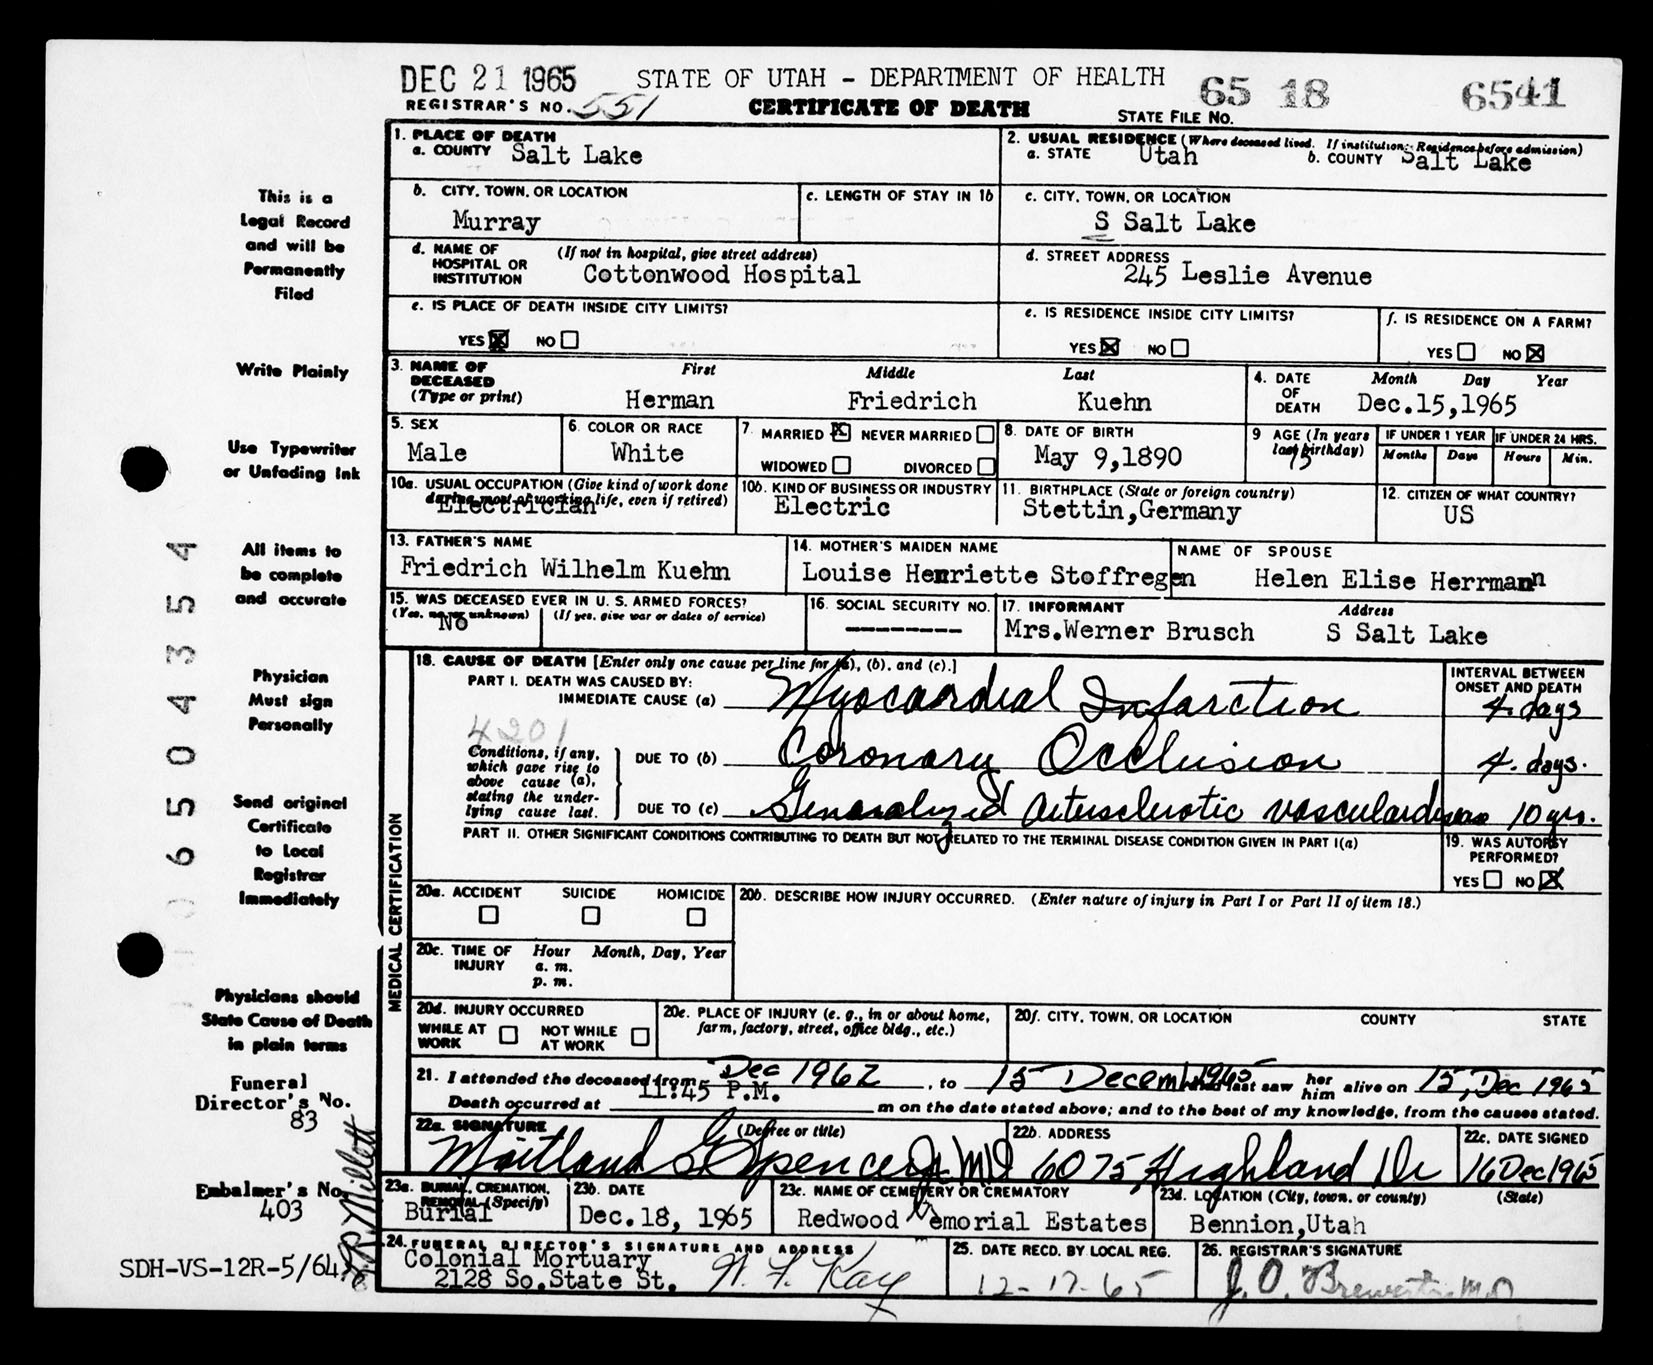 DEC 21 1965 STATE OF UTAH - DEPARTMENT OF HEALTH 65 18 6541
REGISTRAR'S NO. 551 CERTIFICATE OF DEATH STATE FILE NO.
1. PLACE OF DEATH
a. COUNTY Salt Lake
2. USUAL RESIDENCE (Where deceased lived. If institution: Residence before admission)
a. STATE Utah b. COUNTY Salt Lake
b. CITY, TOWN, OR LOCATION
Murray
c. LENGTH OF STAY IN 1b
c. CITY, TOWN, OR LOCATION
S Salt Lake
d. NAME OF HOSPITAL OR INSTITUTION (If not in hospital, give street address)
Cottonwood Hospital
d. STREET ADDRESS
245 Leslie Avenue
e. IS PLACE OF DEATH INSIDE CITY LIMITS?
YES NO
e. IS RESIDENCE INSIDE CITY LIMITS?
YES NO
f. IS RESIDENCE ON A FARM?
YES NO
3. NAME OF DECEASED (Type or print)
First Middle Last
Herman Friedrich Kuehn
4. DATE OF DEATH Month Day Year
Dec.15,1965
5. SEX
Male
6. COLOR OR RACE
White
7. MARRIED NEVER MARRIED
WIDOWED DIVORCED
8. DATE OF BIRTH
May 9,1890
9 AGE (In years last birthday)
75
IF UNDER 1 YEAR IF UNDER 24 HRS.
Months Days Hours Min.
10a. USUAL OCCUPATION (Give kind of work done during most of working life, even if retired)
Electrician
10b. KIND OF BUSINESS OR INDUSTRY
Electric
11. BIRTHPLACE (State or foreign country)
Stettin,Germany
12. CITIZEN OF WHAT COUNTRY?
US
13. FATHER'S NAME
Friedrich Wilhelm Kuehn
14. MOTHER'S MAIDEN NAME
Louise Henriette Stoffregen
NAME OF SPOUSE
Helen Elise Herrmann
15. WAS DECEASED EVER IN U. S. ARMED FORCES?
(Yes, no or unknown) (If yes, give war or dates of service)
No
16. SOCIAL SECURITY NO.
---------
17. INFORMANT Address
Mrs.Werner Brusch S Salt Lake
MEDICAL CERTIFICATION
18. CAUSE OF DEATH [Enter only one cause per line for (a), (b), and (c).]
PART I. DEATH WAS CAUSED BY:
IMMEDIATE CAUSE (a) Myocardial Infarction
INTERVAL BETWEEN ONSET AND DEATH
4. days
4201
Conditions, if any, which gave rise to above cause (a), stating the underlying cause last.
DUE TO (b) Coronary Occlusion 4. days.
DUE TO (c) Generalyzed artusclerotic vascular disease 10 yrs.
PART II. OTHER SIGNIFICANT CONDITIONS CONTRIBUTING TO DEATH BUT NOT RELATED TO THE TERMINAL DISEASE CONDITION GIVEN IN PART I(a)
19. WAS AUTOPSY PERFORMED?
YES NO
20a. ACCIDENT SUICIDE HOMICIDE
20b. DESCRIBE HOW INJURY OCCURRED. (Enter nature of injury in Part I or Part II of item 18.)
20c. TIME OF INJURY Hour Month, Day, Year
a. m.
p. m.
20d. INJURY OCCURRED
WHILE AT WORK NOT WHILE AT WORK
20e. PLACE OF INJURY (e. g., in or about home, farm, factory, street, office bldg., etc.)
20f. CITY, TOWN, OR LOCATION COUNTY STATE
21. I attended the deceased from Dec 1962, to 15 December 1965 and last saw her him alive on 15, Dec 1965
Death occurred at 11:45 P.M. m on the date stated above; and to the best of my knowledge, from the causes stated.
22a. SIGNATURE (Degree or title)
Maitland G Spencer Jr MD
22b. ADDRESS
6075 Highland Dr
22c. DATE SIGNED
16 Dec 1965
23a. BURIAL, CREMATION, REMOVAL (Specify)
Burial
23b. DATE
Dec.18, 1965
23c. NAME OF CEMETERY OR CREMATORY
Redwood Memorial Estates
23d. LOCATION (City, town, or county) (State)
Bennion,Utah
24. FUNERAL DIRECTOR'S SIGNATURE AND ADDRESS
Colonial Mortuary
2128 So.State St. W. F. Kay
25. DATE RECD. BY LOCAL REG.
12-17-65
26. REGISTRAR'S SIGNATURE
J. O. Brewerton M.D
This is a
Legal Record
and will be
Permanently
Filed
Write Plainly
Use Typewriter
or Unfading Ink
All items to
be complete
and accurate
Physician
Must sign
Personally
Send original
Certificate
to Local
Registrar
Immediately
Physicians should
State Cause of Death
in plain terms
Funeral
Director's No.
83
Embalmer's No.
403
SDH-VS-12R-5/64
10650 4354